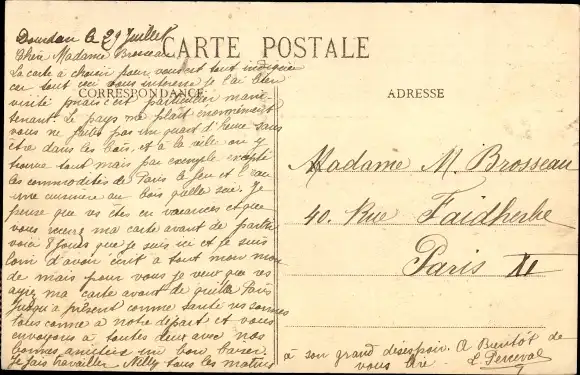 Dourdan le 29 Juillet
CARTE POSTALE
Chère Madame Brosseau
La carte à choisir pour vous est tout indiquée
car tout ceci vous intéresse je l'ai bien
CORRESPONDANCE
visité mais c'est particulier main
tenant. Le pays me plait énormément
vous ne faites pas un quart d'heure sans
être dans les bois, et à la ville on y
trouve tout mais par exemple excepté
les commodités de Paris le feu et l'eau
une cuisinière au bois quelle scie. Je
pense que vs êtes en vacances et que
vous ma carte avant de partir
voici 8 jours que je suis ici et je suis
loin d'avoir écrit à tout mon mon
de mais pour vous je veux que vs
ayiez ma carte avant de quitter Paris
Jusqu'à présent comme santé vs sommes
tous comme à notre départ et vous
envoyons à toutes deux avec nos
bonnes amitiés un bon baiser
Je fais travailler Nelly tous les matins
à son grand désespoir. A Bientôt de
vous lire
L Perceval
ADRESSE
Madame M. Brosseau
40. Rue Faidherbe
Paris XI